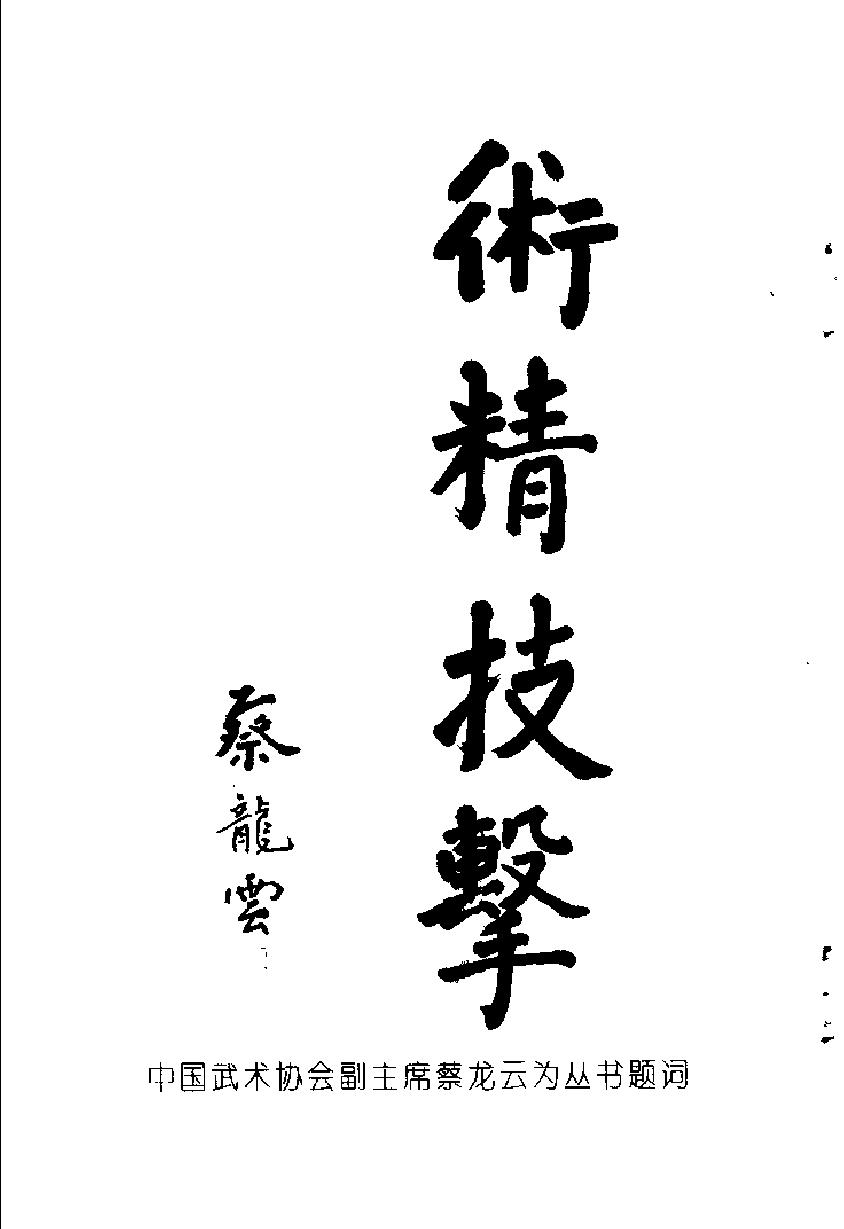 術精技擊
蔡龍雲
中国武术协会副主席蔡龙云为丛书题词